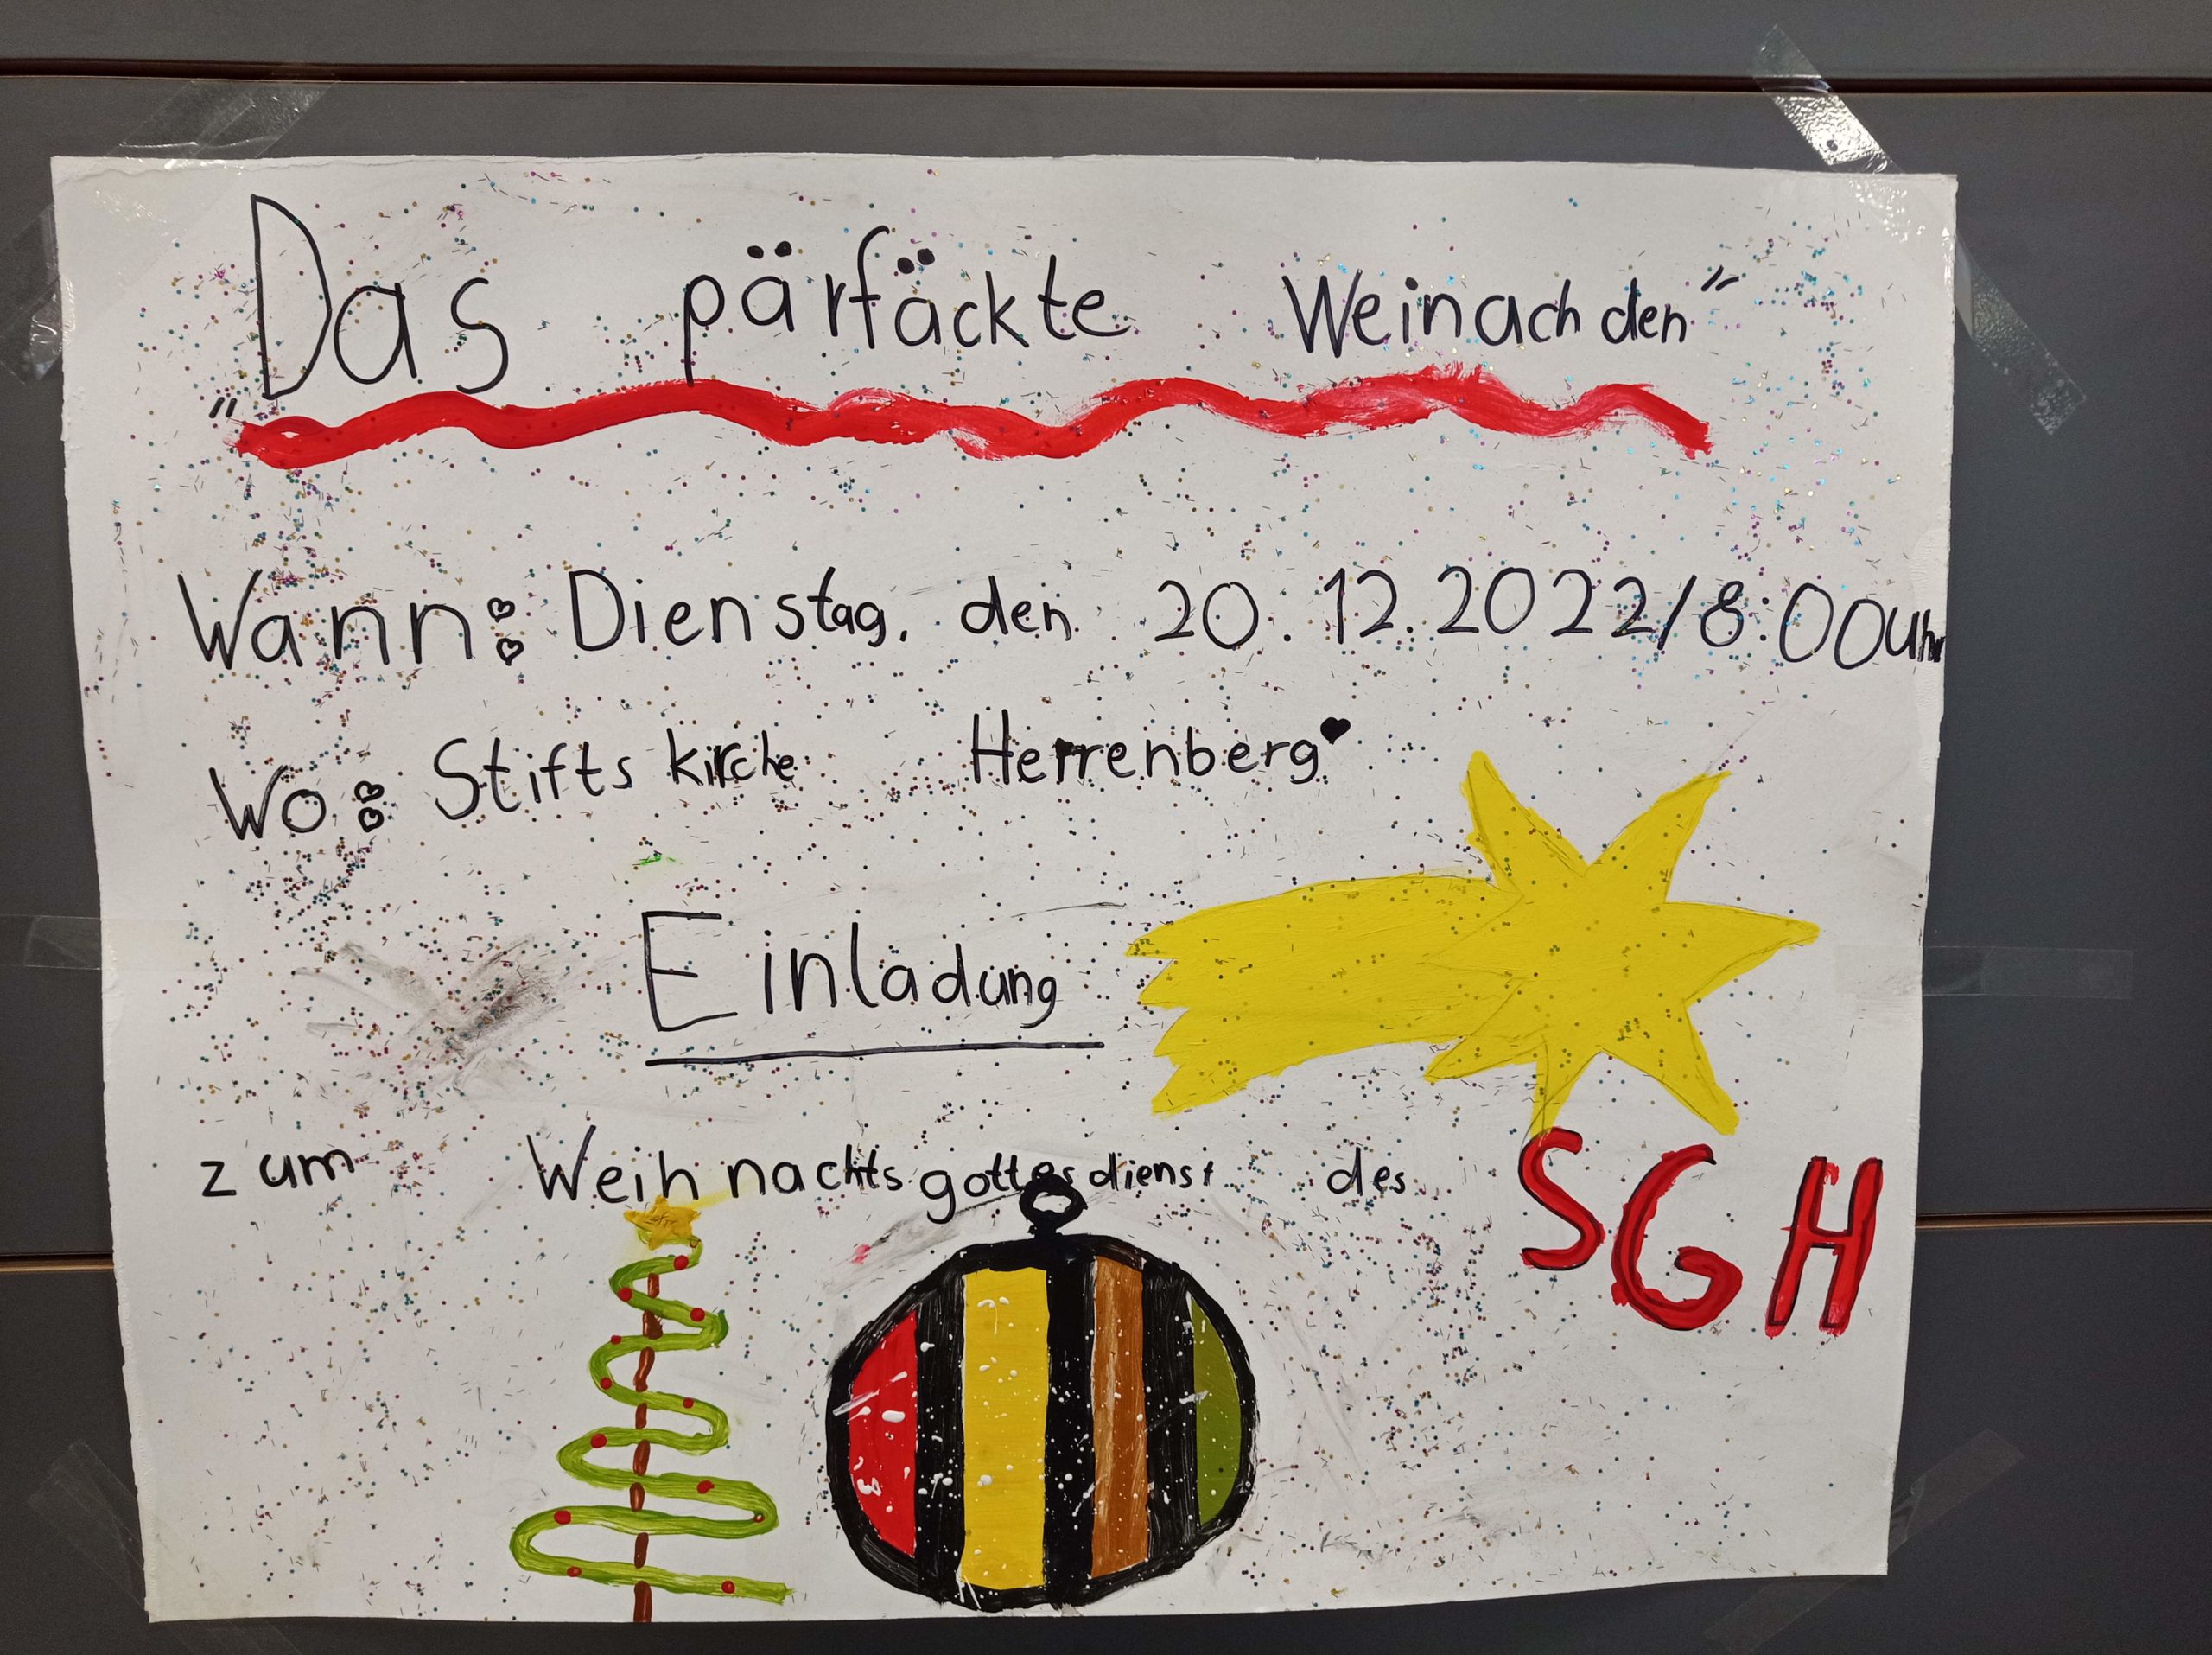 „Das pärfäckte Weinachden"
Wann: Dienstag, den 20.12.2022/8:00Uhr
Wo: Stiftskirche Herrenberg
Einladung
zum Weihnachtsgottesdienst des SGH